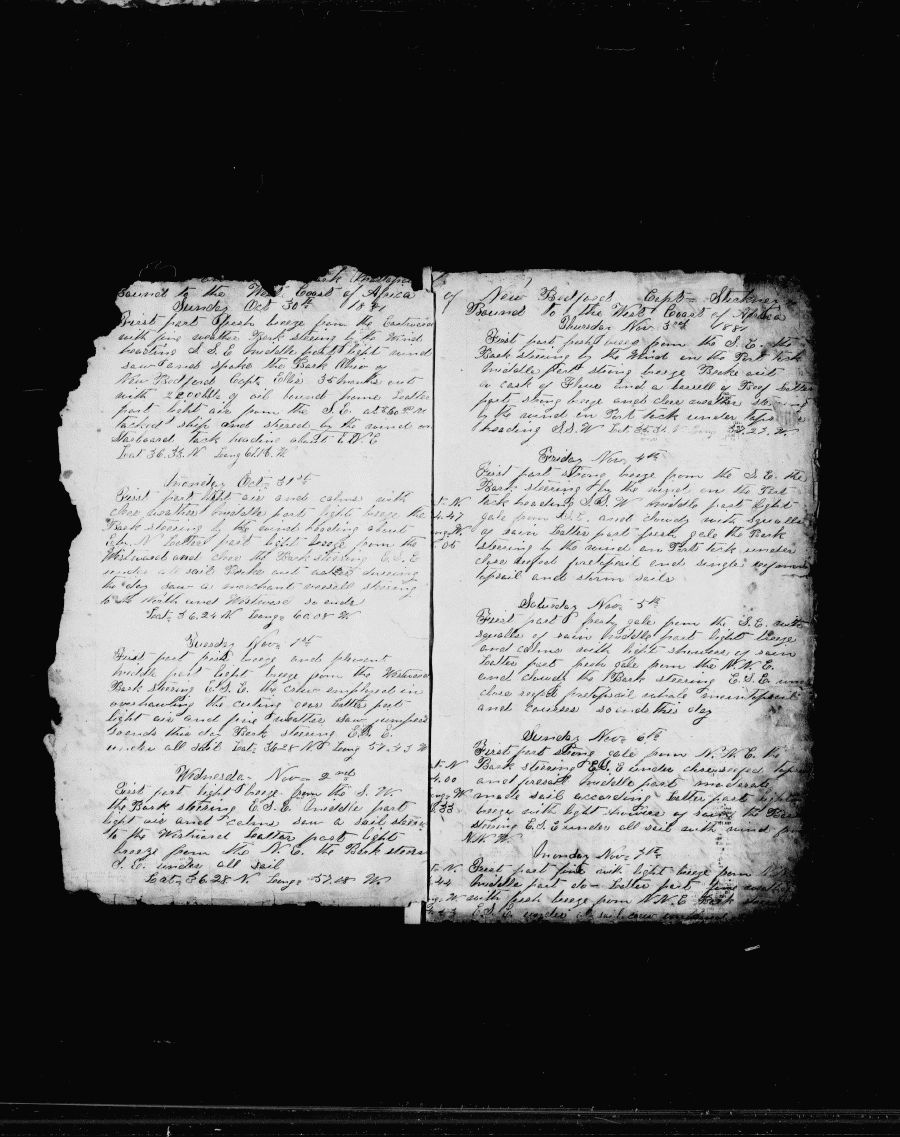 Bound to the West Coast of Africa
Sunday Oct 30th 1881
First part fresh breeze from the Eastward
with fine weather Bark steering by the Wind
heading S S E Middle part light wind
saw and spoke the Bark of
New Bedford Capt Ellis 35 months out
with 2200 bbls of oil bound home Latter
part light air from the S. E. at 6
tacked ship and steered by the wind on
Starboard tack heading about E.N.E
Lat 36.33 N Long 61.16 W
Monday Oct 31st
First part light air and calms with
clear weather Middle part light breeze the
Bark steering by the wind heading about
E by N Latter part light breeze from the
Westward and clear the Bark steering E.S.E
under all sail Broke out water during
the day saw a merchant vessel steering
to the North and Westward so ends
Lat 36.24 N Long 60.08 W
Tuesday Nov 1st
First part fresh breeze and pleasant
Middle part light breeze from the Westward
Bark steering E.S.E. the crew employed in
overhauling the cutting gear Latter part
light air and fine weather saw jumpers
So ends this day Bark steering E.S.E.
under all sail Lat 36.28 N Long 57.43 W
Wednesday Nov 2nd
First part light breeze from the S. W.
the Bark steering E.S.E. Middle part
light air and calms saw a sail steering
to the Westward Latter part light
breeze from the N.E. the Bark steering
S.E. under all sail
Lat 36.28 N. Long 57.18 W.
of New Bedford Capt Stickney
Bound to the West Coast of Africa
Thursday Nov 3rd 1881
First part fresh breeze from the S.E. the
Bark steering by the Wind on the Port tack
Middle part strong breeze Broke out
a cask of Flour and a barrell of Beef Latter
part strong breeze and clear weather steering
by the wind on Port tack under tops
heading S.S.W Lat 35.31 N Long 57.27 W
Friday Nov 4th
First part strong breeze from the S.E. the
Bark steering by the wind on the Port
tack heading S.S.W Middle part light
gale from S.E. and cloudy with squalls
of rain Latter part fresh gale the Bark
steering by the wind on Port tack under
close reefed foretopsail and single reef main
topsail and storm sails
Saturday Nov 5th
First part fresh gale from the S.E. with
squalls of rain Middle part light breeze
and calms with light showers of rain
Latter part fresh gale from the N.N.E.
and cloudy the Bark steering E.S.E under
close reefed foretopsail whole maintopsail
and courses so ends this day
Sunday Nov 6th
First part strong gale from N.N.E. the
Bark steering E.S.E under close reefed topsails
and foresail Middle part moderate
made sail according Latter part light
breeze with light showers of rain the Bark
steering E.S.E under all sail with wind from
N.N.W.
Monday Nov 7th
First part fine with light breeze from
Middle part do Latter part fine weather
with fresh breeze from N.N.E. Bark steering
E.S.E. under all sail